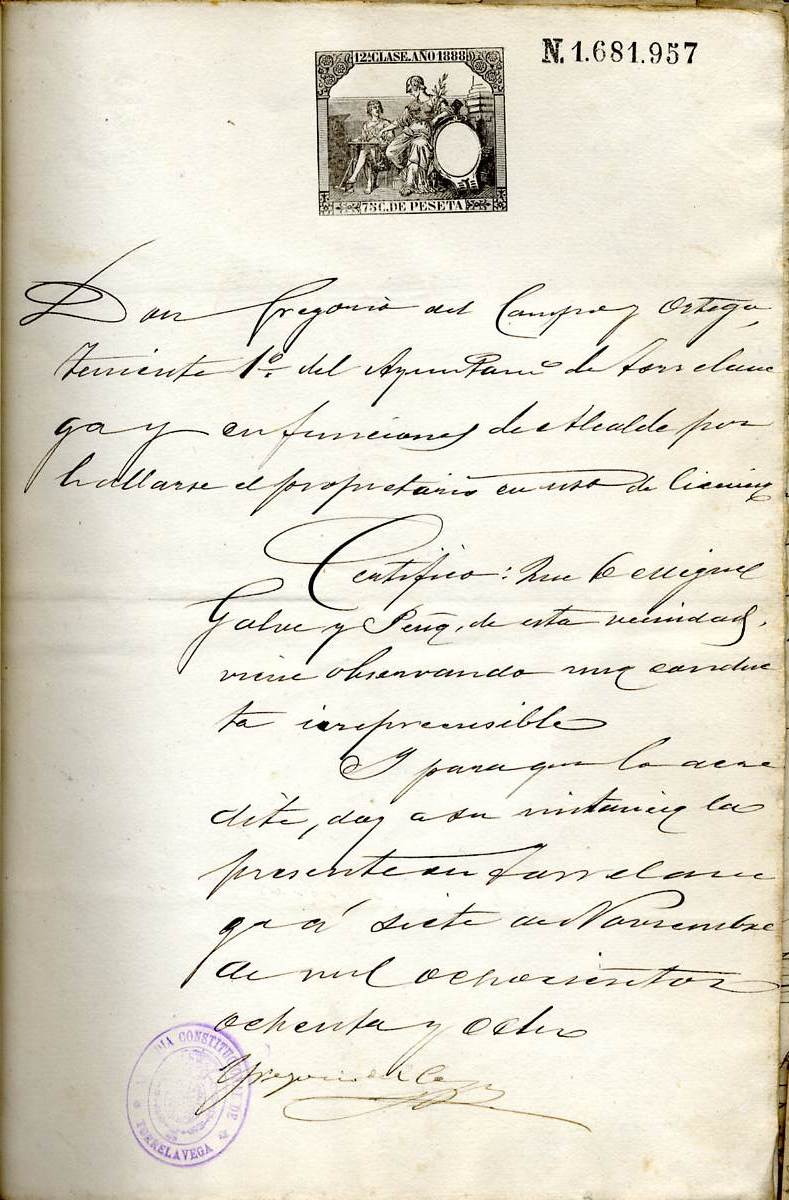 12ª CLASE. AÑO 1888
N. 1.681.957
75 C. DE PESETA
Don Gregorio del Campo y Ortega,
Teniente 1º. del Ayuntamº de Torrelave
ga y en funciones de Alcalde por
hallarse el propietario en uso de licencia
Certifico: Que D Miguel
Galve y Peña, de esta vecindad,
viene observando una conduc
ta irreprensible
Y para que lo acre
dite, doy a su instancia la
presente en Torrelave
ga á siete de Noviembre
de mil ochocientos
ochenta y ocho
Gregorio del Campo
ALCALDIA CONSTITUCIONAL DE
TORRELAVEGA